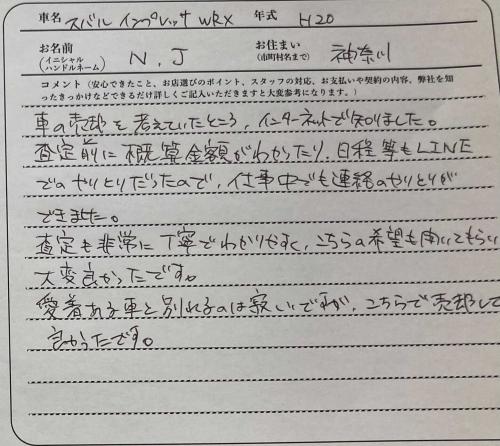 車名 スバル インプレッサ WRX 年式 H20
お名前 (イニシャル ハンドルネーム) N.J お住まい (市町村名まで) 神奈川
コメント（安心できたこと、お店選びのポイント、スタッフの対応、お支払いや契約の内容、弊社を知
ったきっかけなどできるだけ詳しくご記入いただきますと大変参考になります。）
車の売却を考えていたところ、インターネットで知りました。
査定前に概算金額がわかったり、日程等もLINE
でのやりとりだったので、仕事中でも連絡のやりとりが
できました。
査定も非常に丁寧でわかりやすく、こちらの希望も聞いてもらい
大変良かったです。
愛着ある車と別れるのは寂しいですが、こちらで売却して
良かったです。